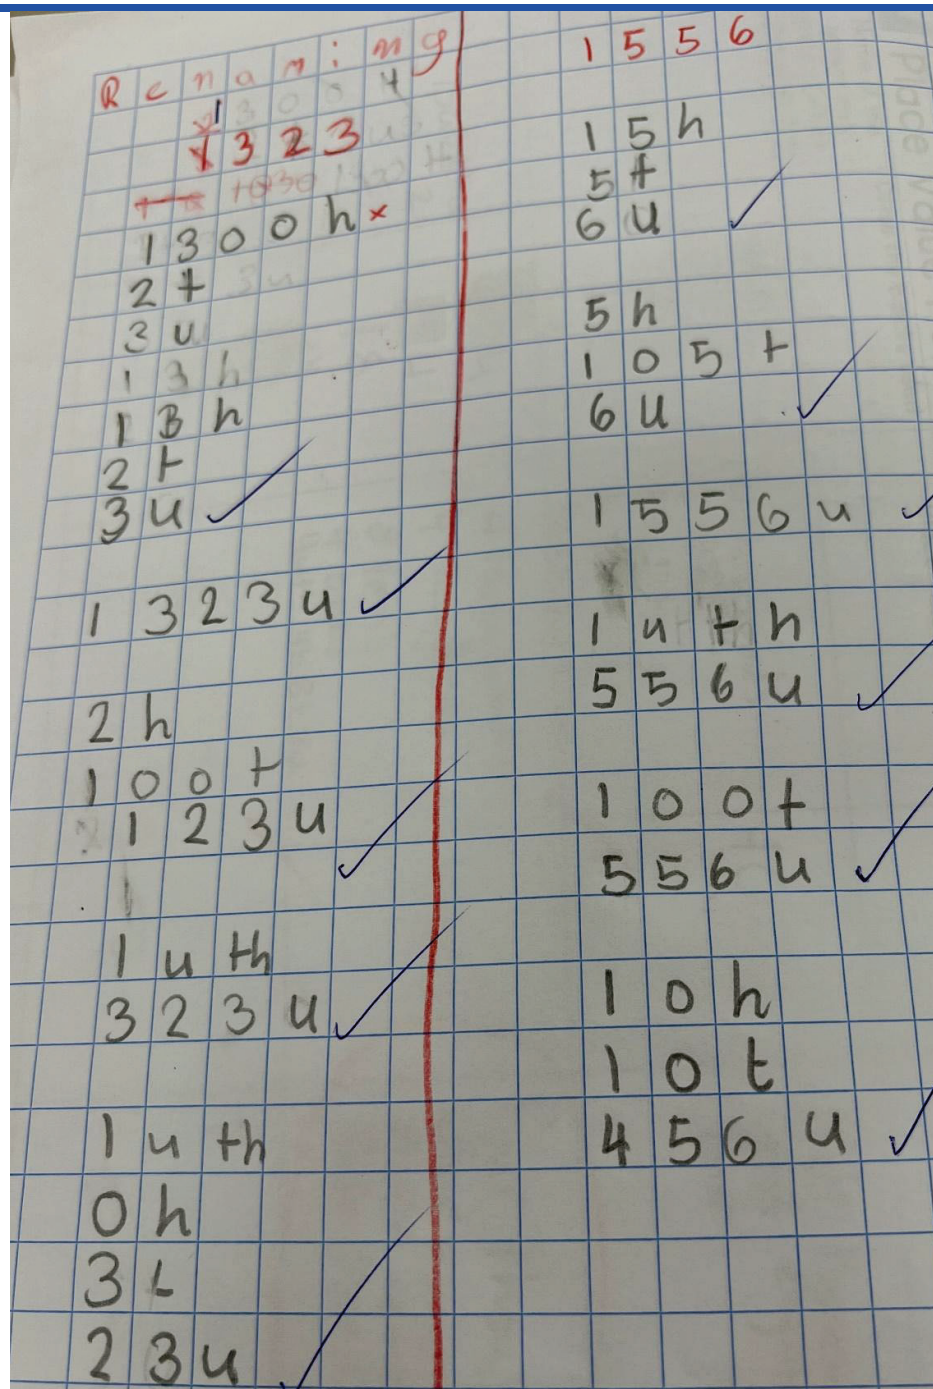 Renaming
1323
1300h ×
2t
3u
13h
13h
2t
3u ✓
1323u ✓
2h
100t
123u ✓
1uth
323u ✓
1uth
0h
3t
23u ✓
1556
15h
5t
6u ✓
5h
105t
6u ✓
1556u ✓
1uth
556u ✓
100t
556u ✓
10h
10t
456u ✓